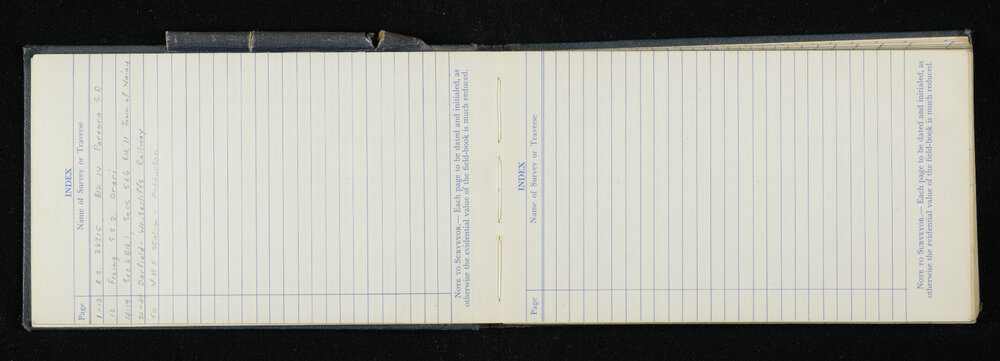 INDEX
Page Name of Survey or Traverse
1-12 R.S. 38315 Blk IV Pareora S.D.
13 Fixing S.S 2 Orari
18-19 Sec 6 Blk 1, Secs 5&6 Blk 11 Town of
20-49 Darfield - Whitecliffs Railway
50 V.H.F. Station
NOTE TO SURVEYOR.— Each page to be dated and initialed, as
otherwise the evidential value of the field-book is much reduced.
INDEX
Page Name of Survey or Traverse
NOTE TO SURVEYOR.— Each page to be dated and initialed, as
otherwise the evidential value of the field-book is much reduced.